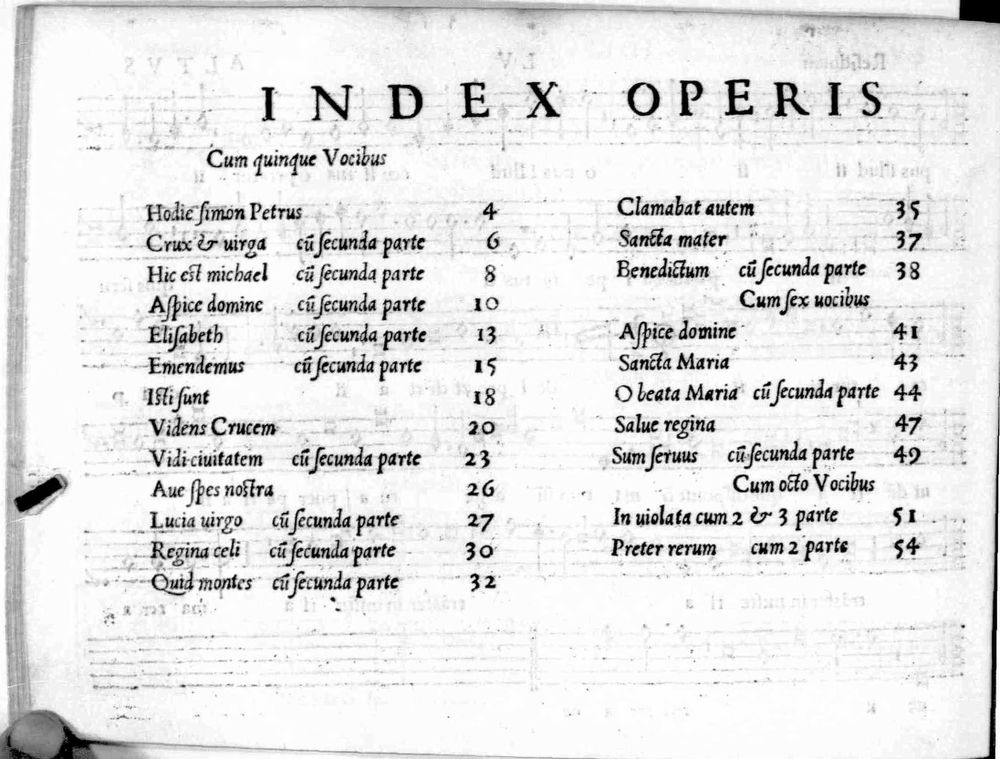 INDEX OPERIS
Cum quinque Vocibus
Hodie ſimon Petrus 4
Crux & uirga cū ſecunda parte 6
Hic est michael cū ſecunda parte 8
Aſpice domine cū ſecunda parte 10
Eliſabeth cū ſecunda parte 13
Emendemus cū ſecunda parte 15
Iſti ſunt 18
Videns Crucem 20
Vidi ciuitatem cū ſecunda parte 23
Aue ſpes noſtra 26
Lucia uirgo cū ſecunda parte 27
Regina celi cū ſecunda parte 30
Quid montes cū ſecunda parte 32
Clamabat autem 35
Sancta mater 37
Benedictum cū ſecunda parte 38
Cum ſex uocibus
Aſpice domine 41
Sancta Maria 43
O beata Maria cū ſecunda parte 44
Salue regina 47
Sum ſeruus cū ſecunda parte 49
Cum octo Vocibus
In uiolata cum 2 & 3 parte 51
Preter rerum cum 2 parte 54